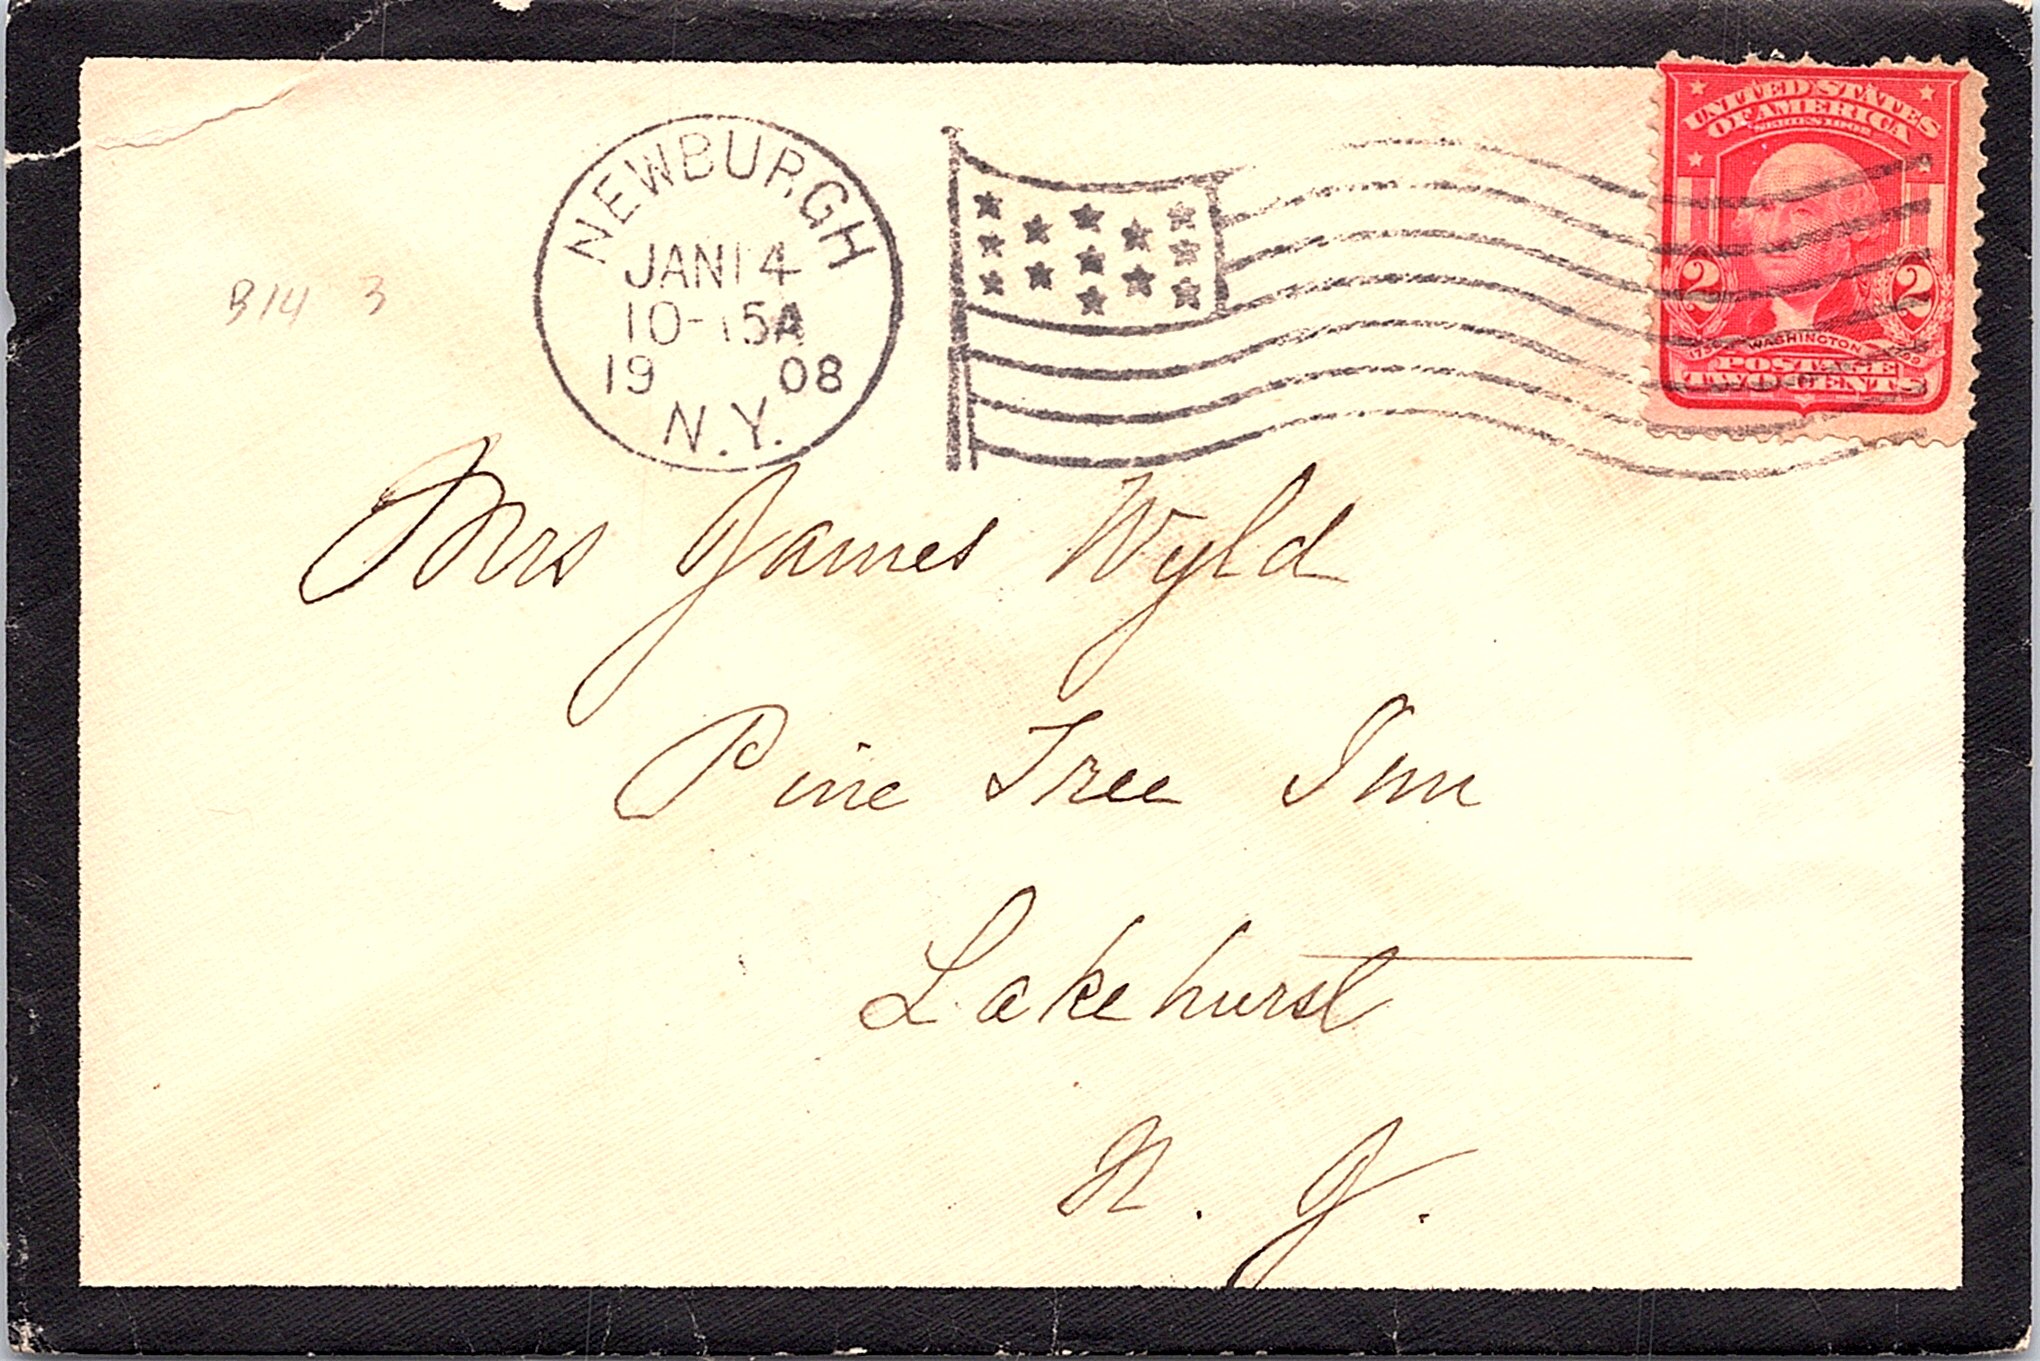 UNITED STATES
OF AMERICA
SERIES 1902
2 2
WASHINGTON
POSTAGE
TWO CENTS
NEWBURGH
JAN 14
10-15A
19 08
N.Y.
B14 3
Mrs James Wyld
Pine Tree Inn
Lakehurst
N. J.